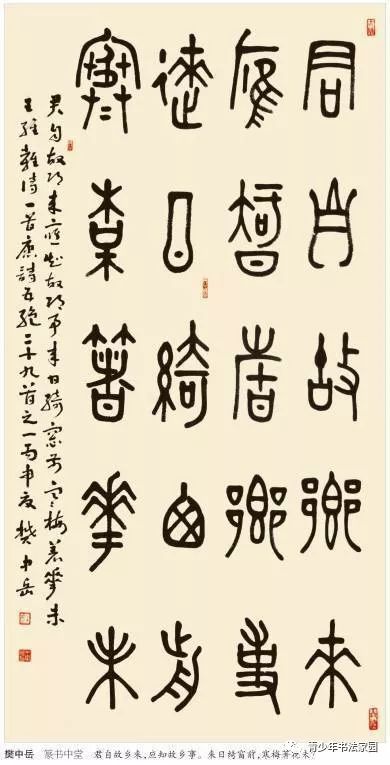 君自故鄉來
應智故鄉事
來日綺窗前
寒某箸華未
君自故鄉來應知故鄉事來日綺窗前寒梅著花未
王維雜詩一首唐詩五絕二十九首之一丙申夏樊中岳
青少年书法家园
樊中岳 篆书中堂 君自故乡来,应知故乡事。来日绮窗前,寒梅著花未?